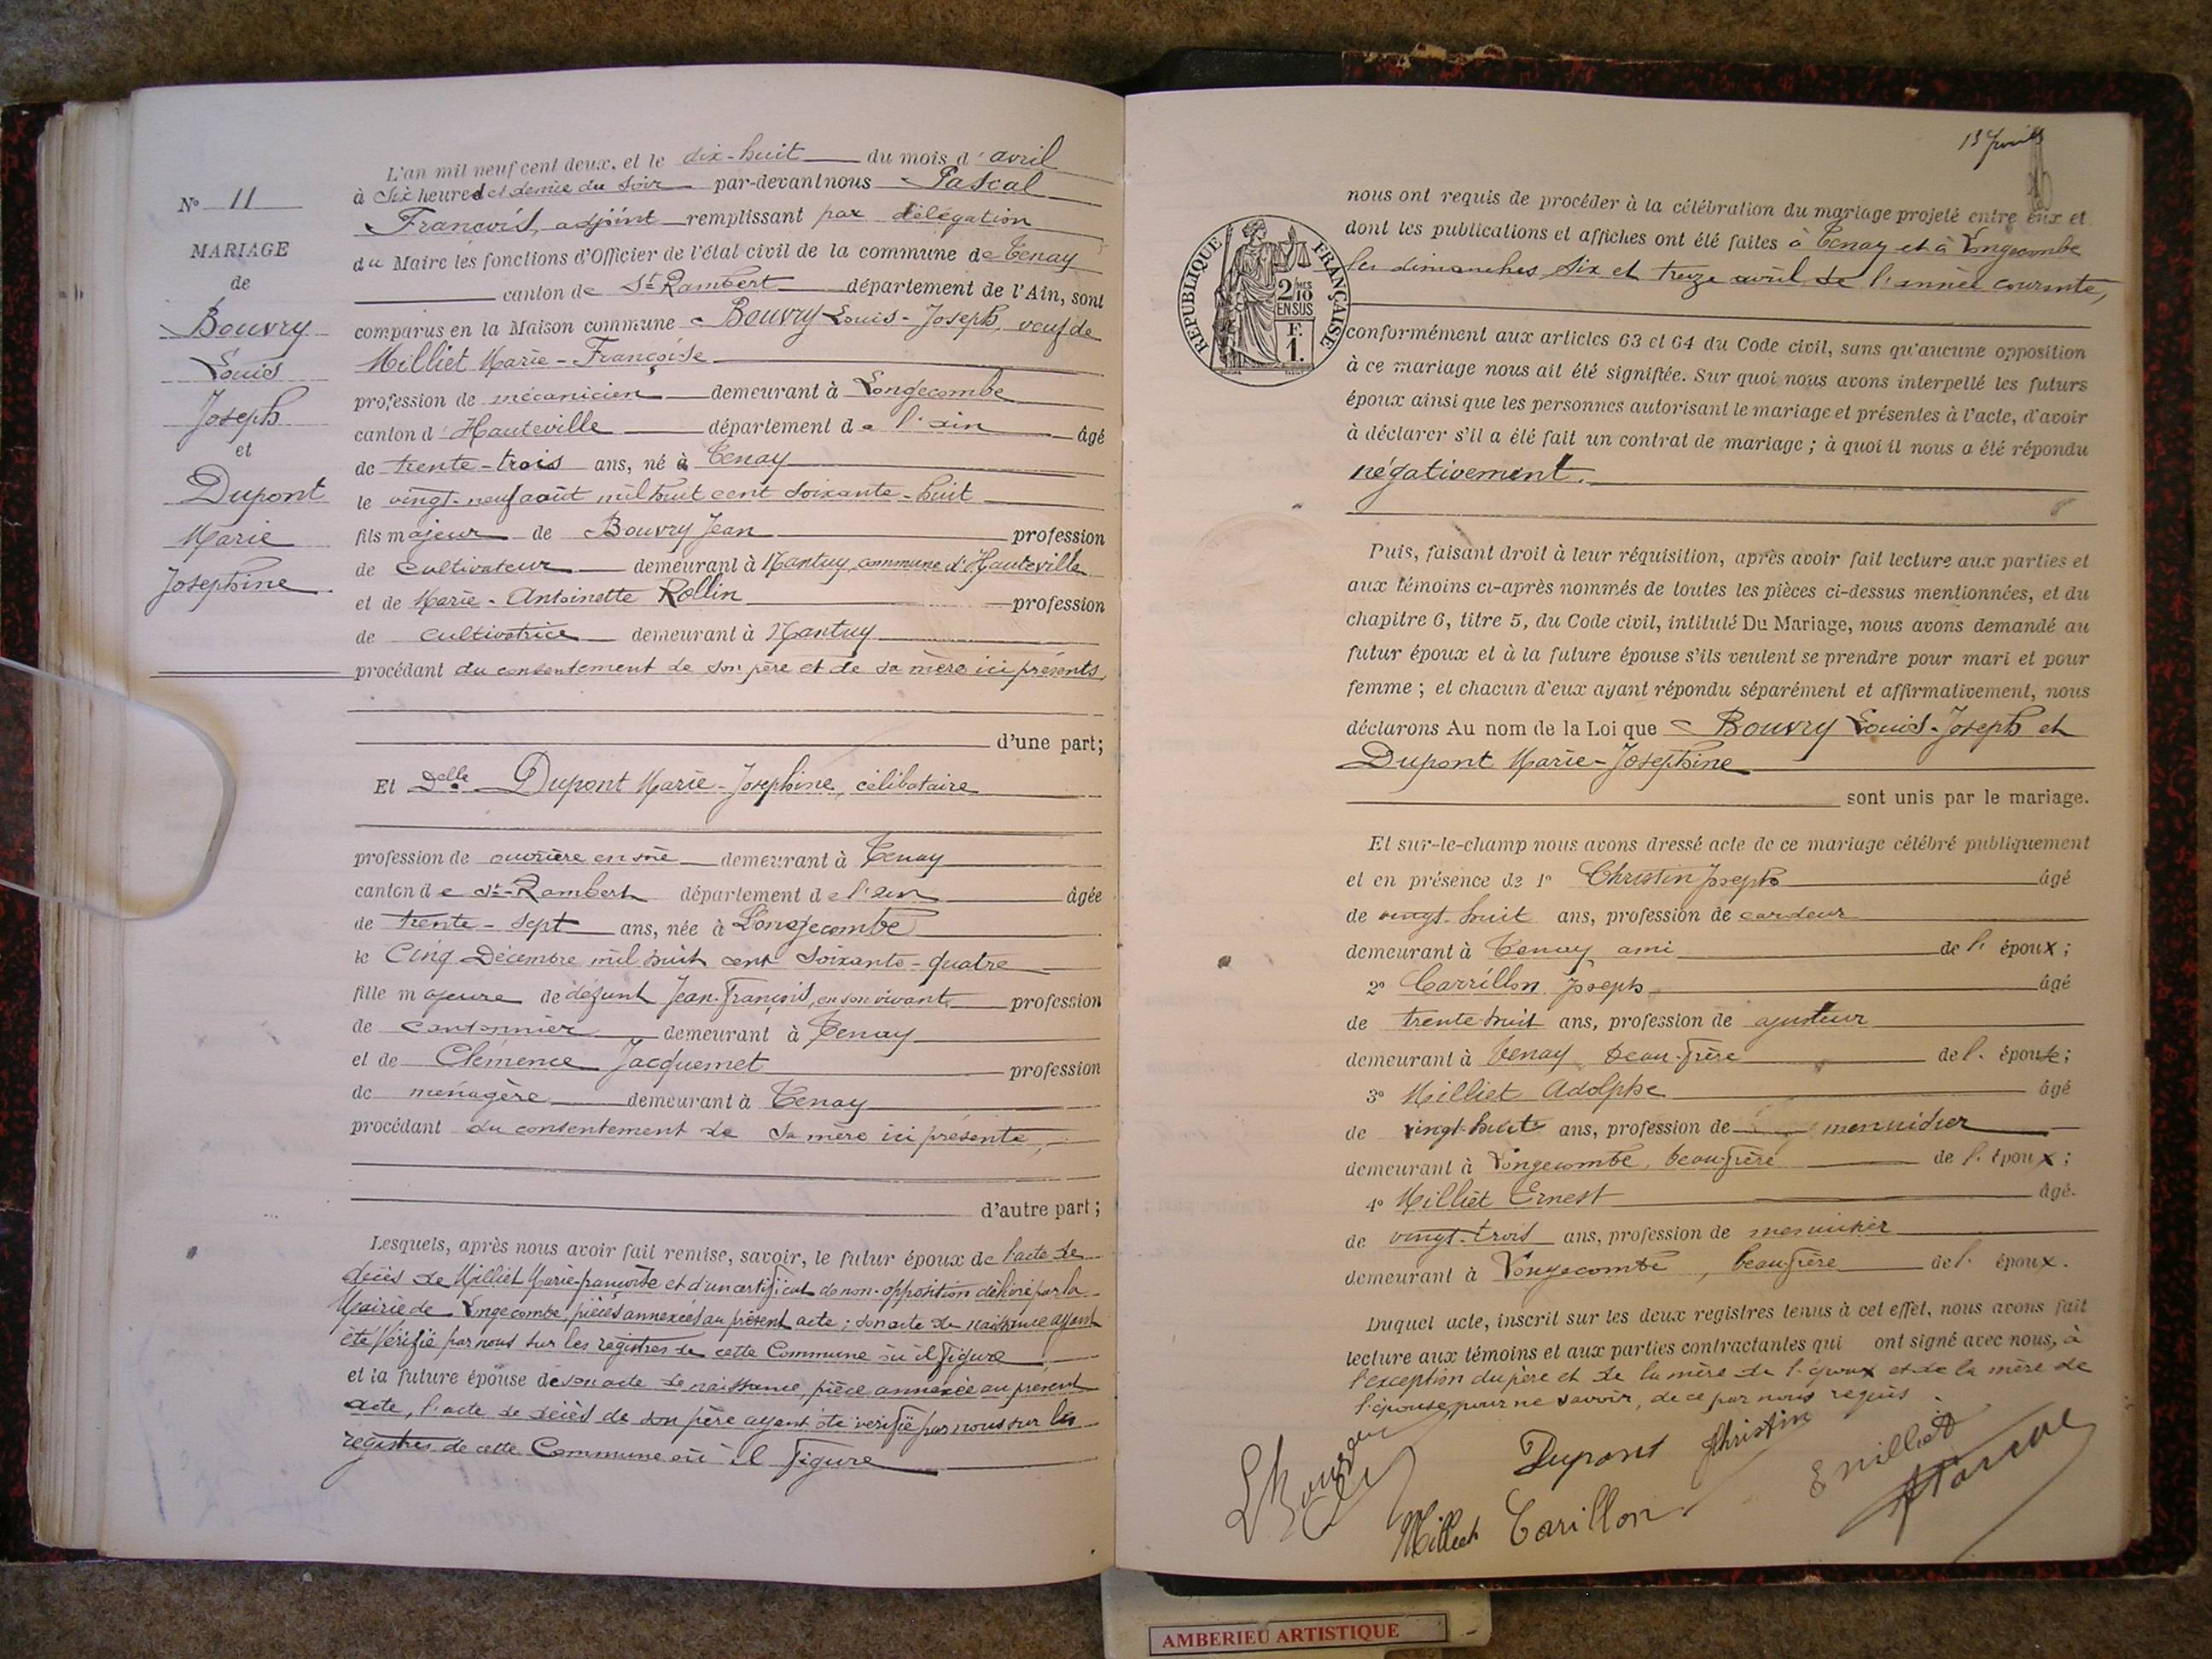 L'an mil neuf cent deux, et le dix-huit du mois d'avril
à six heures et demie du soir par-devant nous Pascal
N° 11
François, adjoint remplissant par délégation
MARIAGE
de
Bouvry
Louis
Joseph
et
Dupont
Marie
Josephine
du Maire les fonctions d'Officier de l'état civil de la commune de Tenay
canton de St Rambert département de l'Ain, sont
comparus en la Maison commune Bouvry Louis-Joseph, veuf de
Milliet Marie-Françoise
profession de mécanicien demeurant à Longecombe
canton d'Hauteville département de l'ain âgé
de trente-trois ans, né à Tenay
le vingt-neuf août mil huit cent soixante-huit
fils majeur de Bouvry Jean profession
de cultivateur demeurant à Nantuy, commune d'Hauteville
et de Marie-Antoinette Rollin profession
de cultivatrice demeurant à Nantuy
procédant du consentement de son père et de sa mère ici présents,
d'une part;
Et Delle Dupont Marie-Josephine, célibataire
profession de ouvrière en soie demeurant à Tenay
canton de St-Rambert département de l'ain âgée
de trente-sept ans, née à Longecombe
le Cinq Décembre mil huit cent soixante-quatre
fille majeure de défunt Jean-François, en son vivant profession
de cantonnier demeurant à Tenay
et de Clémence Jacquemet profession
de ménagère demeurant à Tenay
procédant du consentement de sa mère ici présente,
d'autre part;
Lesquels, après nous avoir fait remise, savoir, le futur époux de l'acte de
décès de Milliet Marie-françoise et d'un certificat de non-opposition délivré par la
Mairie de Longecombe, pièces annexées au présent acte; son acte de naissance ayant
été vérifié par nous sur les registres de cette Commune où il figure
et la future épouse de son acte de naissance, pièce annexée au présent
acte, l'acte de décès de son père ayant été vérifié par nous sur les
registres de cette Commune où il figure
RÉPUBLIQUE FRANÇAISE
2 MES
10
EN SUS
F.
1.
nous ont requis de procéder à la célébration du mariage projeté entre eux et
dont les publications et affiches ont été faites à Tenay et à Longecombe
les dimanches six et treize avril de l'année courante,
conformément aux articles 63 et 64 du Code civil, sans qu'aucune opposition
à ce mariage nous ait été signifiée. Sur quoi nous avons interpellé les futurs
époux ainsi que les personnes autorisant le mariage et présentes à l'acte, d'avoir
à déclarer s'il a été fait un contrat de mariage; à quoi il nous a été répondu
négativement.
Puis, faisant droit à leur réquisition, après avoir fait lecture aux parties et
aux témoins ci-après nommés de toutes les pièces ci-dessus mentionnées, et du
chapitre 6, titre 5, du Code civil, intitulé Du Mariage, nous avons demandé au
futur époux et à la future épouse s'ils veulent se prendre pour mari et pour
femme; et chacun d'eux ayant répondu séparément et affirmativement, nous
déclarons Au nom de la Loi que Bouvry Louis-Joseph et
Dupont Marie-Josephine
sont unis par le mariage.
Et sur-le-champ nous avons dressé acte de ce mariage célébré publiquement
et en présence de 1° Christin Joseph âgé
de vingt-huit ans, profession de cardeur
demeurant à Tenay ami de l'époux;
2° Carrillon Joseph âgé
de trente-huit ans, profession de ajusteur
demeurant à Tenay beau-frère de l'épouse;
3° Milliet Adolphe âgé
de vingt-huit ans, profession de menuisier
demeurant à Longecombe, beau-frère de l'époux;
4° Milliet Ernest âgé.
de vingt-trois ans, profession de menuisier
demeurant à Longecombe, beau-frère de l'époux.
Duquel acte, inscrit sur les deux registres tenus à cet effet, nous avons fait
lecture aux témoins et aux parties contractantes qui ont signé avec nous, à
l'exception du père et de la mère de l'époux et de la mère de
l'épouse pour ne savoir, de ce par nous requis.
Dupont Christin E Milliet
Milliet Carillon Pascal
AMBERIEU ARTISTIQUE